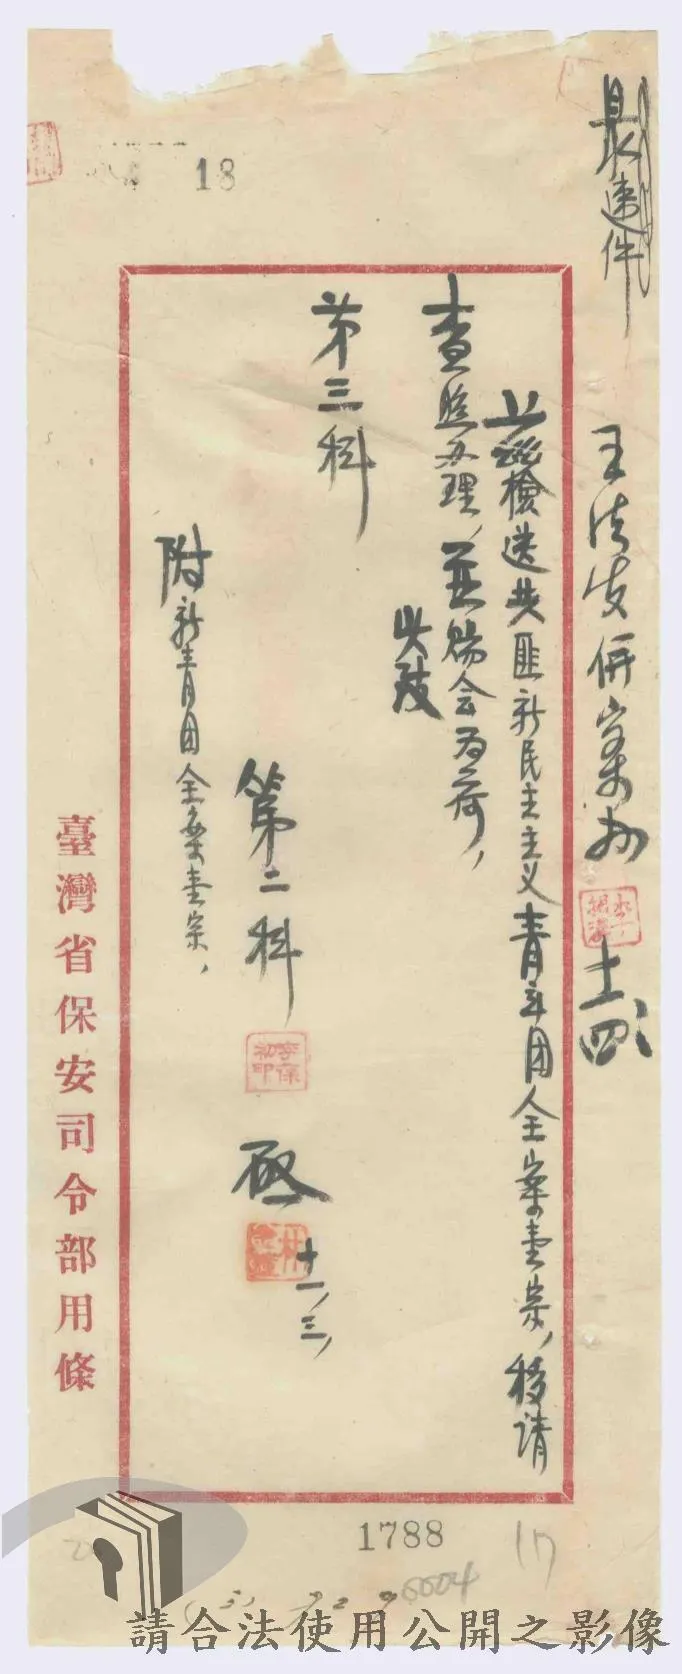 最速件
王清波併案办
十一、四、
一、茲檢送共匪新民主主义青年团全案壹宗，移請
查照办理，並賜会為荷，
此致
第三科
第二科
啟
十一、三，
附新青团全案壹宗，
臺灣省保安司令部用條
18
1788
17
0004
請合法使用公開之影像